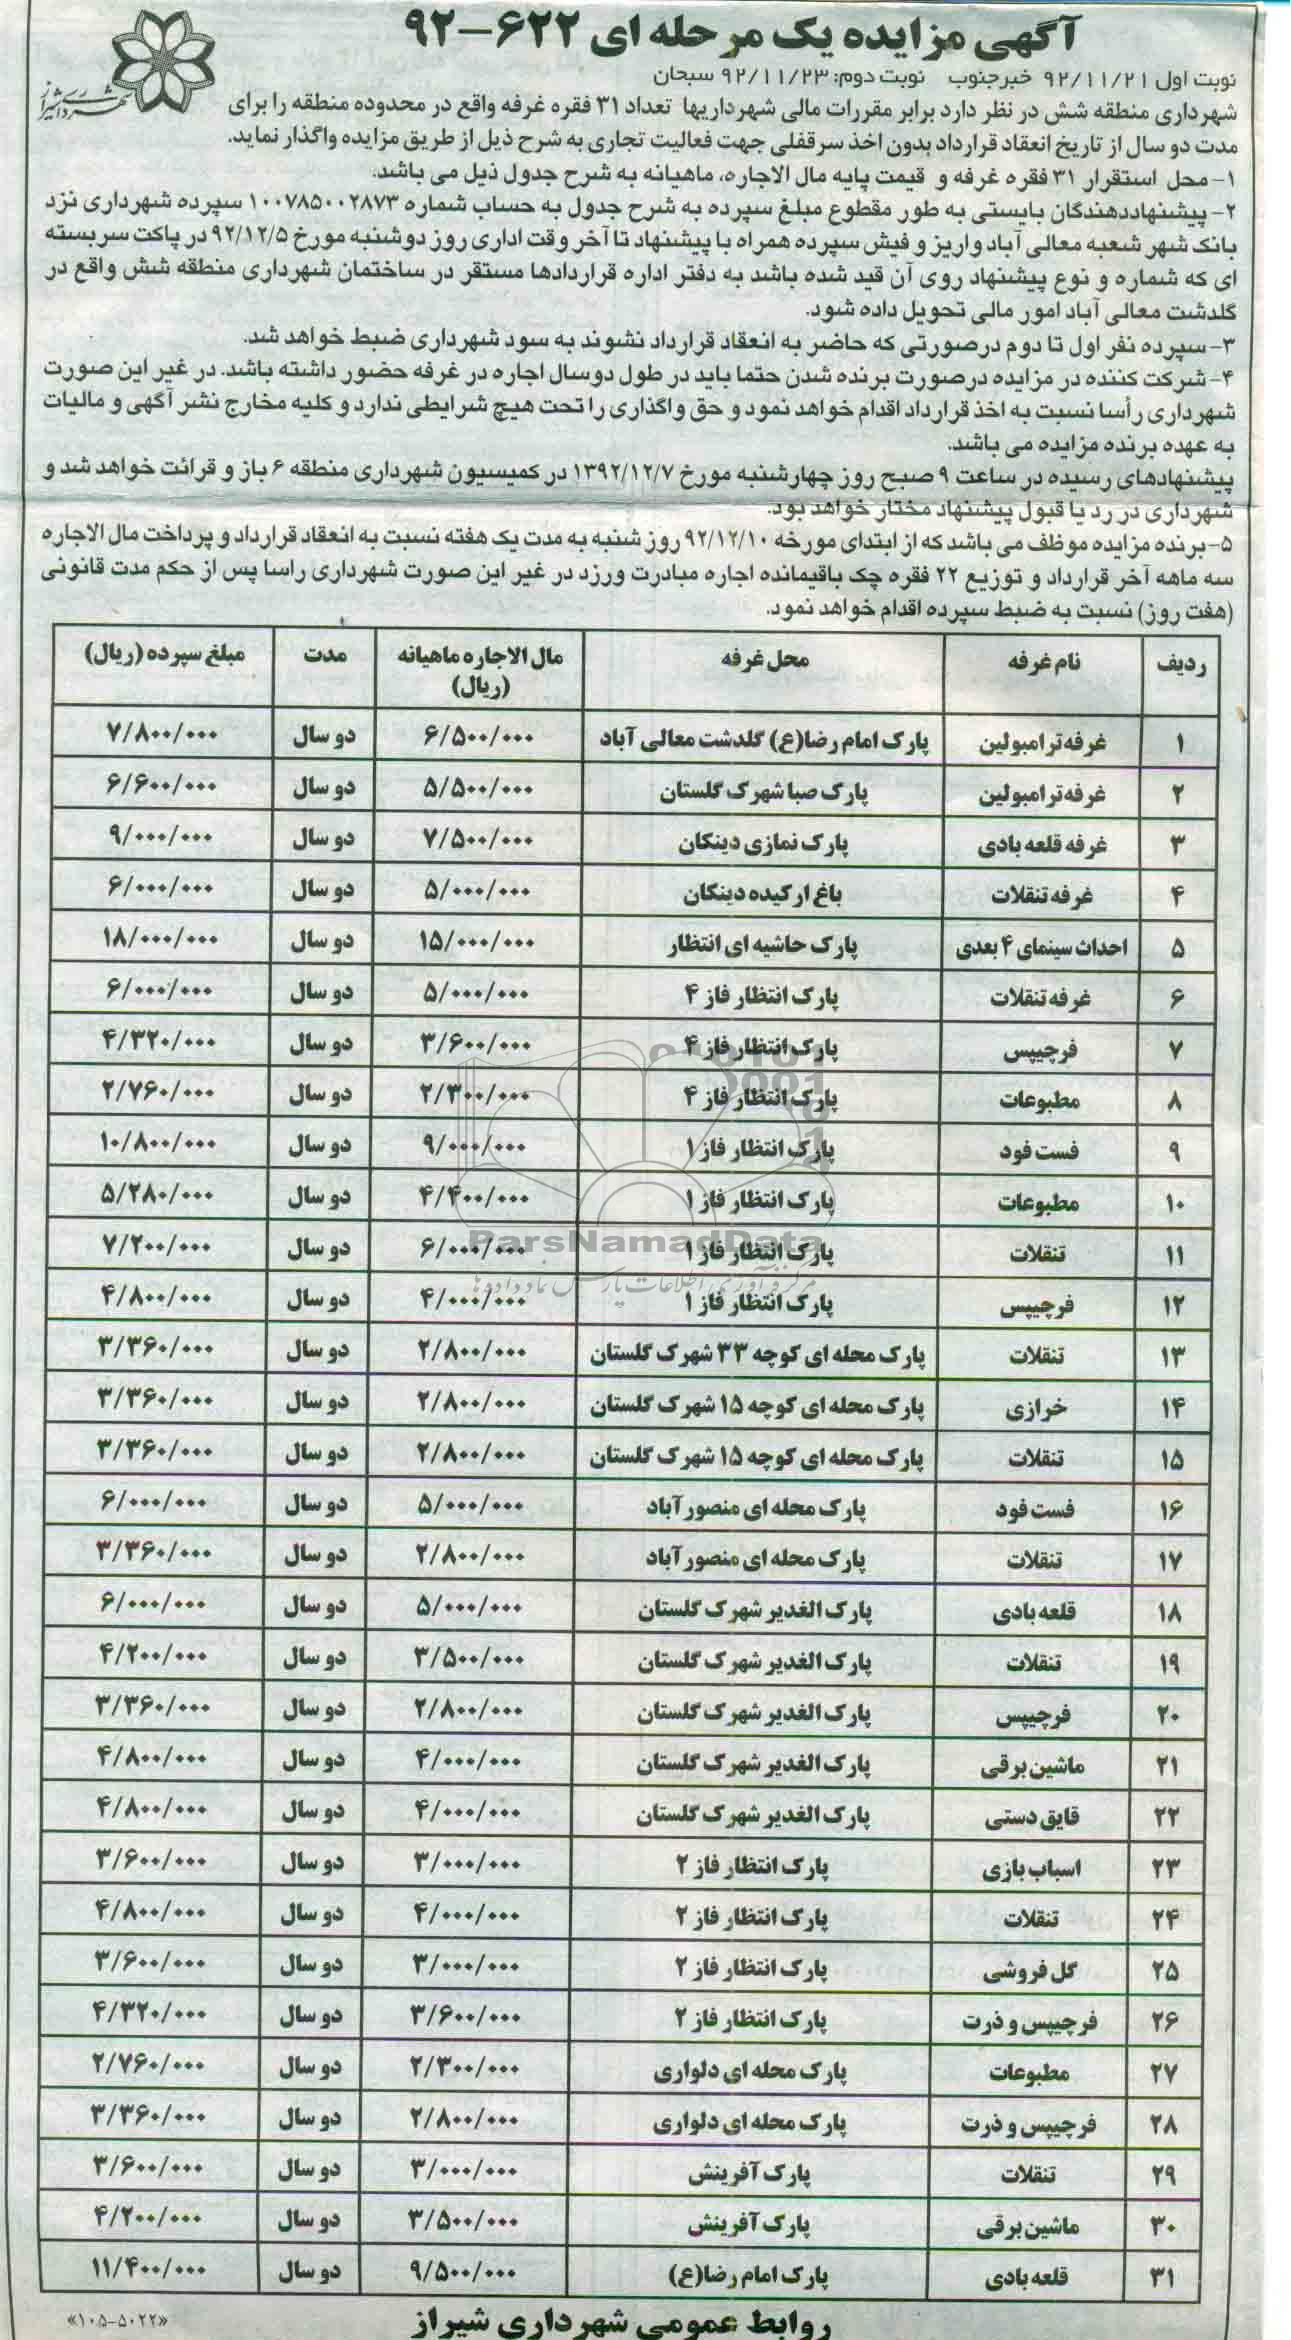 آگهی مزایده یک مرحله ای ۶۲۲-۹۲
نوبت اول ۹۲/۱۱/۲۱ خبرجنوب نوبت دوم: ۹۲/۱۱/۲۳ سبحان
شهرداری شیراز
شهرداری منطقه شش در نظر دارد برابر مقررات مالی شهرداریها تعداد ۳۱ فقره غرفه واقع در محدوده منطقه را برای
مدت دو سال از تاریخ انعقاد قرارداد بدون اخذ سرقفلی جهت فعالیت تجاری به شرح ذیل از طریق مزایده واگذار نماید.
۱- محل استقرار ۳۱ فقره غرفه و قیمت پایه مال الاجاره، ماهیانه به شرح جدول ذیل می باشد.
۲- پیشنهاددهندگان بایستی به طور مقطوع مبلغ سپرده به شرح جدول به حساب شماره ۱۰۰۷۸۵۰۰۲۸۷۳ سپرده شهرداری نزد
بانک شهر شعبه معالی آباد واریز و فیش سپرده همراه با پیشنهاد تا آخر وقت اداری روز دوشنبه مورخ ۹۲/۱۲/۵ در پاکت سربسته
ای که شماره و نوع پیشنهاد روی آن قید شده باشد به دفتر اداره قراردادها مستقر در ساختمان شهرداری منطقه شش واقع در
گلدشت معالی آباد امور مالی تحویل داده شود.
۳- سپرده نفر اول تا دوم درصورتی که حاضر به انعقاد قرارداد نشوند به سود شهرداری ضبط خواهد شد.
۴- شرکت کننده در مزایده درصورت برنده شدن حتما باید در طول دوسال اجاره در غرفه حضور داشته باشد. در غیر این صورت
شهرداری رأسا نسبت به اخذ قرارداد اقدام خواهد نمود و حق واگذاری را تحت هیچ شرایطی ندارد و کلیه مخارج نشر آگهی و مالیات
به عهده برنده مزایده می باشد.
پیشنهادهای رسیده در ساعت ۹ صبح روز چهارشنبه مورخ ۱۳۹۲/۱۲/۷ در کمیسیون شهرداری منطقه ۶ باز و قرائت خواهد شد و
شهرداری در رد یا قبول پیشنهاد مختار خواهد بود.
۵- برنده مزایده موظف می باشد که از ابتدای مورخه ۹۲/۱۲/۱۰ روز شنبه به مدت یک هفته نسبت به انعقاد قرارداد و پرداخت مال الاجاره
سه ماهه آخر قرارداد و توزیع ۲۲ فقره چک باقیمانده اجاره مبادرت ورزد در غیر این صورت شهرداری راسا پس از حکم مدت قانونی
(هفت روز) نسبت به ضبط سپرده اقدام خواهد نمود.
ردیف نام غرفه محل غرفه مال الاجاره ماهیانه (ریال) مدت مبلغ سپرده (ریال)
۱ غرفه ترامبولین پارک امام رضا(ع) گلدشت معالی آباد ۶/۵۰۰/۰۰۰ دو سال ۷/۸۰۰/۰۰۰
۲ غرفه ترامبولین پارک صبا شهرک گلستان ۵/۵۰۰/۰۰۰ دو سال ۶/۶۰۰/۰۰۰
۳ غرفه قلعه بادی پارک نمازی دینکان ۷/۵۰۰/۰۰۰ دو سال ۹/۰۰۰/۰۰۰
۴ غرفه تنقلات باغ ارکیده دینکان ۵/۰۰۰/۰۰۰ دو سال ۶/۰۰۰/۰۰۰
۵ احداث سینمای ۴ بعدی پارک حاشیه ای انتظار ۱۵/۰۰۰/۰۰۰ دو سال ۱۸/۰۰۰/۰۰۰
۶ غرفه تنقلات پارک انتظار فاز ۴ ۵/۰۰۰/۰۰۰ دو سال ۶/۰۰۰/۰۰۰
۷ فرچیپس پارک انتظار فاز ۴ ۳/۶۰۰/۰۰۰ دو سال ۴/۳۲۰/۰۰۰
۸ مطبوعات پارک انتظار فاز ۴ ۲/۳۰۰/۰۰۰ دو سال ۲/۷۶۰/۰۰۰
۹ فست فود پارک انتظار فاز ۱ ۹/۰۰۰/۰۰۰ دو سال ۱۰/۸۰۰/۰۰۰
۱۰ مطبوعات پارک انتظار فاز ۱ ۴/۴۰۰/۰۰۰ دو سال ۵/۲۸۰/۰۰۰
۱۱ تنقلات پارک انتظار فاز ۱ ۶/۰۰۰/۰۰۰ دو سال ۷/۲۰۰/۰۰۰
ParsNamadData
مرکز فرآوری اطلاعات پارس نماد داده ها
۱۲ فرچیپس پارک انتظار فاز ۱ ۴/۰۰۰/۰۰۰ دو سال ۴/۸۰۰/۰۰۰
۱۳ تنقلات پارک محله ای کوچه ۳۳ شهرک گلستان ۲/۸۰۰/۰۰۰ دو سال ۳/۳۶۰/۰۰۰
۱۴ خرازی پارک محله ای کوچه ۱۵ شهرک گلستان ۲/۸۰۰/۰۰۰ دو سال ۳/۳۶۰/۰۰۰
۱۵ تنقلات پارک محله ای کوچه ۱۵ شهرک گلستان ۲/۸۰۰/۰۰۰ دو سال ۳/۳۶۰/۰۰۰
۱۶ فست فود پارک محله ای منصورآباد ۵/۰۰۰/۰۰۰ دو سال ۶/۰۰۰/۰۰۰
۱۷ تنقلات پارک محله ای منصورآباد ۲/۸۰۰/۰۰۰ دو سال ۳/۳۶۰/۰۰۰
۱۸ قلعه بادی پارک الغدیر شهرک گلستان ۵/۰۰۰/۰۰۰ دو سال ۶/۰۰۰/۰۰۰
۱۹ تنقلات پارک الغدیر شهرک گلستان ۳/۵۰۰/۰۰۰ دو سال ۴/۲۰۰/۰۰۰
۲۰ فرچیپس پارک الغدیر شهرک گلستان ۲/۸۰۰/۰۰۰ دو سال ۳/۳۶۰/۰۰۰
۲۱ ماشین برقی پارک الغدیر شهرک گلستان ۴/۰۰۰/۰۰۰ دو سال ۴/۸۰۰/۰۰۰
۲۲ قایق دستی پارک الغدیر شهرک گلستان ۴/۰۰۰/۰۰۰ دو سال ۴/۸۰۰/۰۰۰
۲۳ اسباب بازی پارک انتظار فاز ۲ ۳/۰۰۰/۰۰۰ دو سال ۳/۶۰۰/۰۰۰
۲۴ تنقلات پارک انتظار فاز ۲ ۴/۰۰۰/۰۰۰ دو سال ۴/۸۰۰/۰۰۰
۲۵ گل فروشی پارک انتظار فاز ۲ ۳/۰۰۰/۰۰۰ دو سال ۳/۶۰۰/۰۰۰
۲۶ فرچیپس و ذرت پارک انتظار فاز ۲ ۳/۶۰۰/۰۰۰ دو سال ۴/۳۲۰/۰۰۰
۲۷ مطبوعات پارک محله ای دلواری ۲/۳۰۰/۰۰۰ دو سال ۲/۷۶۰/۰۰۰
۲۸ فرچیپس و ذرت پارک محله ای دلواری ۲/۸۰۰/۰۰۰ دو سال ۳/۳۶۰/۰۰۰
۲۹ تنقلات پارک آفرینش ۳/۰۰۰/۰۰۰ دو سال ۳/۶۰۰/۰۰۰
۳۰ ماشین برقی پارک آفرینش ۳/۵۰۰/۰۰۰ دو سال ۴/۲۰۰/۰۰۰
۳۱ قلعه بادی پارک امام رضا(ع) ۹/۵۰۰/۰۰۰ دو سال ۱۱/۴۰۰/۰۰۰
روابط عمومی شهرداری شیراز
«۱۰۵-۵۰۲۲»